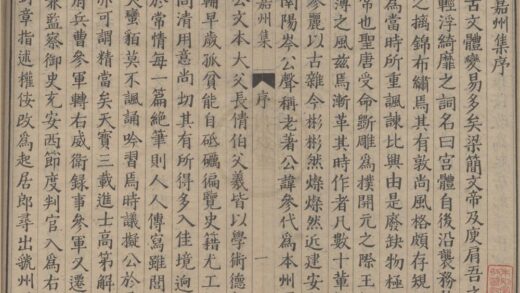 嘉州集序
古文體變易多矣梁簡文帝及庾肩吾之
輕浮綺靡之詞名曰宮體自後沿襲務
之摛錦布繡焉其有敦尚風格頗存規
為當時所重諷諫比興由是廢缺物極
常也聖唐受命斲雕為撲開元之際王
薄之風茲焉漸革其時作者凡數十輩
參麗以古雜今彬彬然燦燦然近建安
南陽岑公聲稱老著公諱參代為本州
嘉州集 序 一
公文本大父長倩伯父羲皆以學術德
輔早歲孤貧能自砥礪徧覽史籍尤工
尚清用意尚切其有所得多入佳境迥
於常情每一篇絕筆則人人傳寫雖閭
夷蠻貊莫不諷誦吟習焉時議擬公於
亦可謂精當矣天寶三載進士高第解
府兵曹參軍轉右威衛錄事參軍又遷
兼監察御史充安西節度判官入為右
封章指述權佞改為起居郎尋出虢州